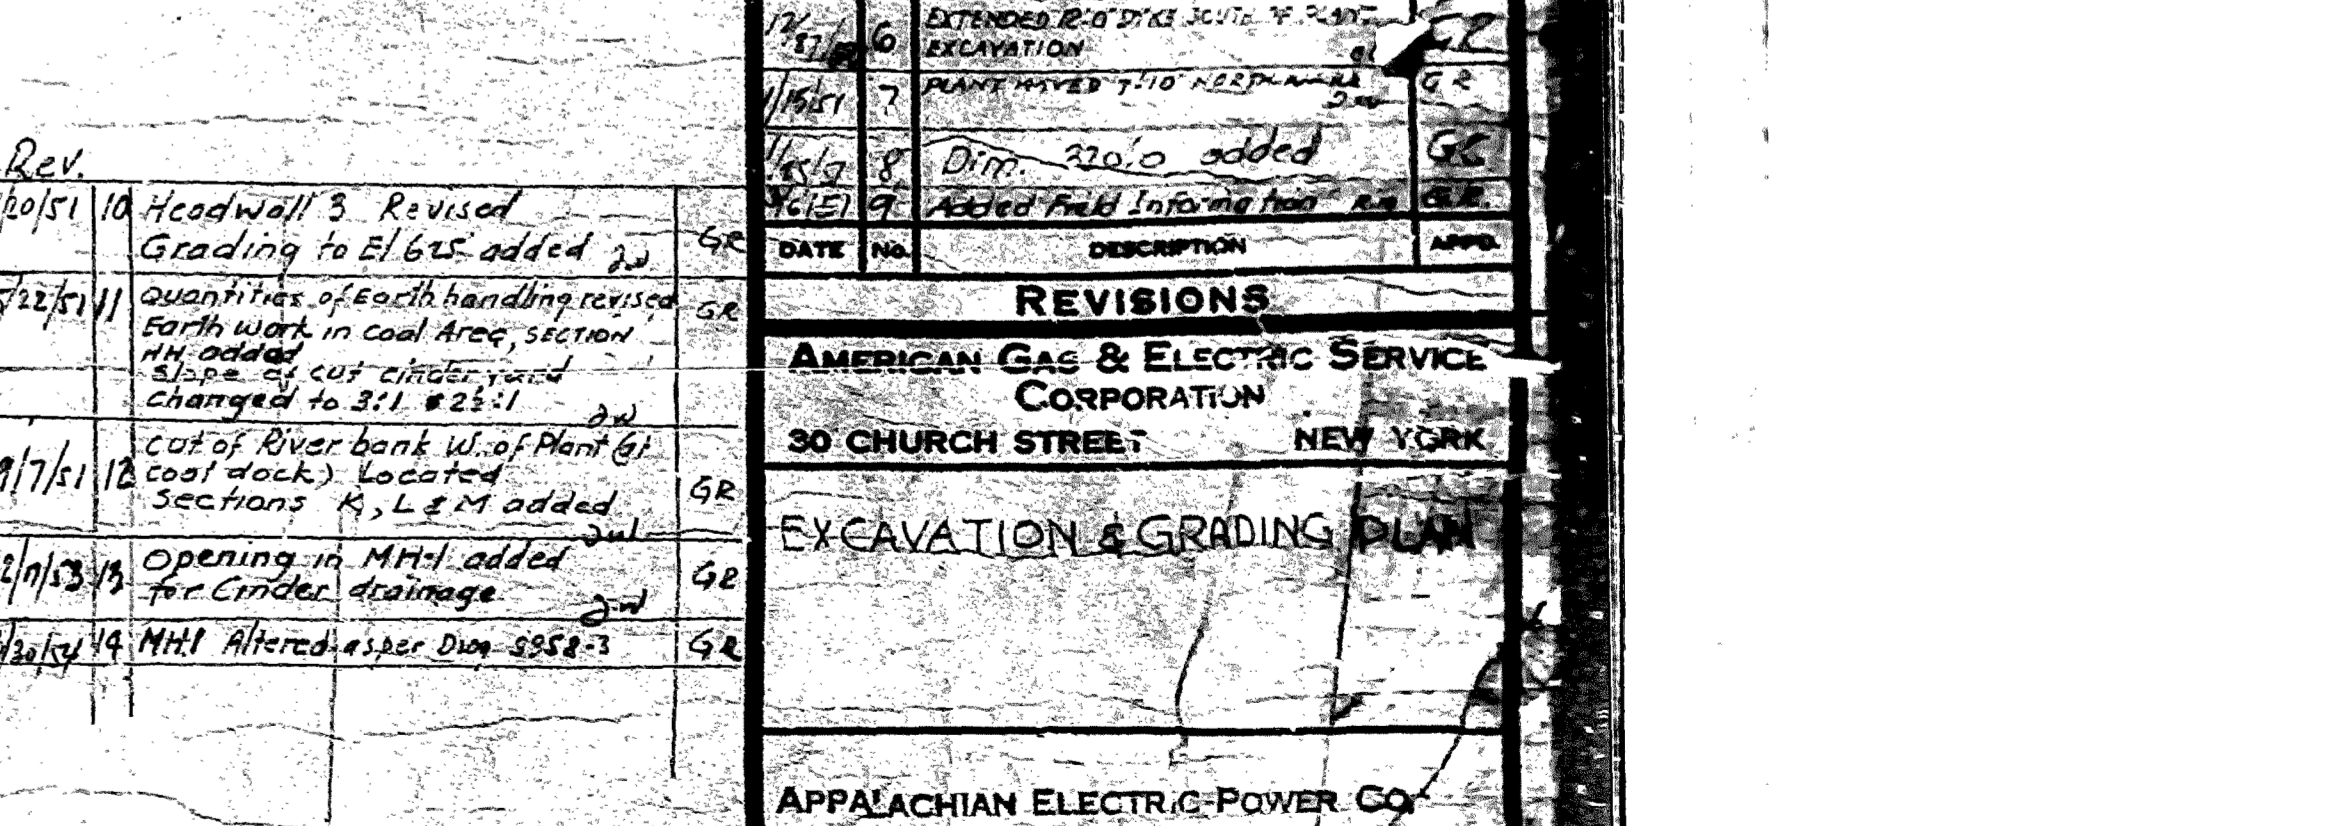 Rev.
20/51 10 Headwall 3 Revised
Grading to El 625' added JW GR
5/22/51 11 Quantities of Earth handling revised GR
Earth work in coal Area, SECTION
HH added
Slope of cut cinder yard
changed to 3:1 & 2½:1 JW
9/7/51 12 cut of River bank W. of Plant (at
coal dock) Located
Sections K, L & M added GR
JW
2/17/53 13 Opening in MH-1 added
for Cinder drainage JW GR
/30/54 14 MH-1 Altered as per Dwg 9958-3 GR
6 EXTENDED DIKE SOUTH OF PLANT
EXCAVATION
1/15/51 7 PLANT MOVED GR
8 Dim. added
9 Added Field Information G.R.
DATE No. DESCRIPTION APPD.
REVISIONS
AMERICAN GAS & ELECTRIC SERVICE
CORPORATION
30 CHURCH STREET NEW YORK
EXCAVATION & GRADING PLAN
APPALACHIAN ELECTRIC POWER CO.